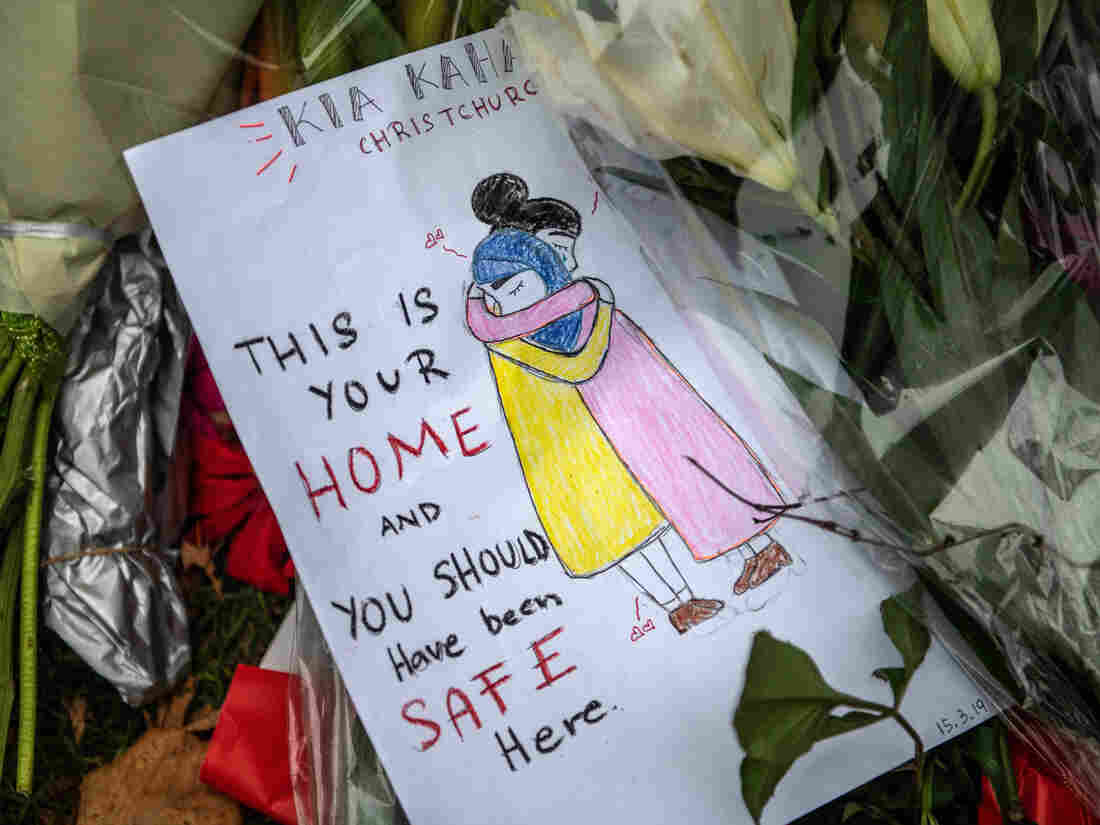 KIA KAHA
CHRISTCHURC
THIS IS
YOUR
HOME
AND
YOU SHOULD
Have been
SAFE
Here.
15.3.19